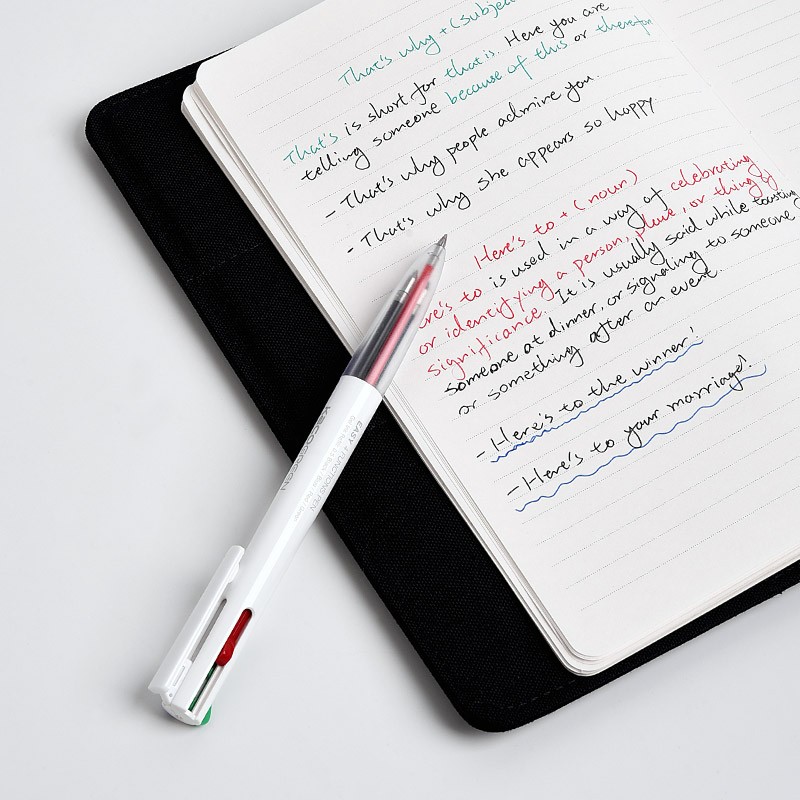 That's why + (subjec
That's is short for that is. Here you are
telling someone because of this or therefor
- That's why people admire you.
- That's why she appears so happy
Here's to + (noun)
re's to is used in a way of celebrating
or identifying a person, place, or thing of
significance. It is usually said while toasting
someone at dinner, or signaling to someone
or something after an event.
- Here's to the winner!
- Here's to your marriage!
EASY 4 FUNCTIONS PEN
KACOGREEN